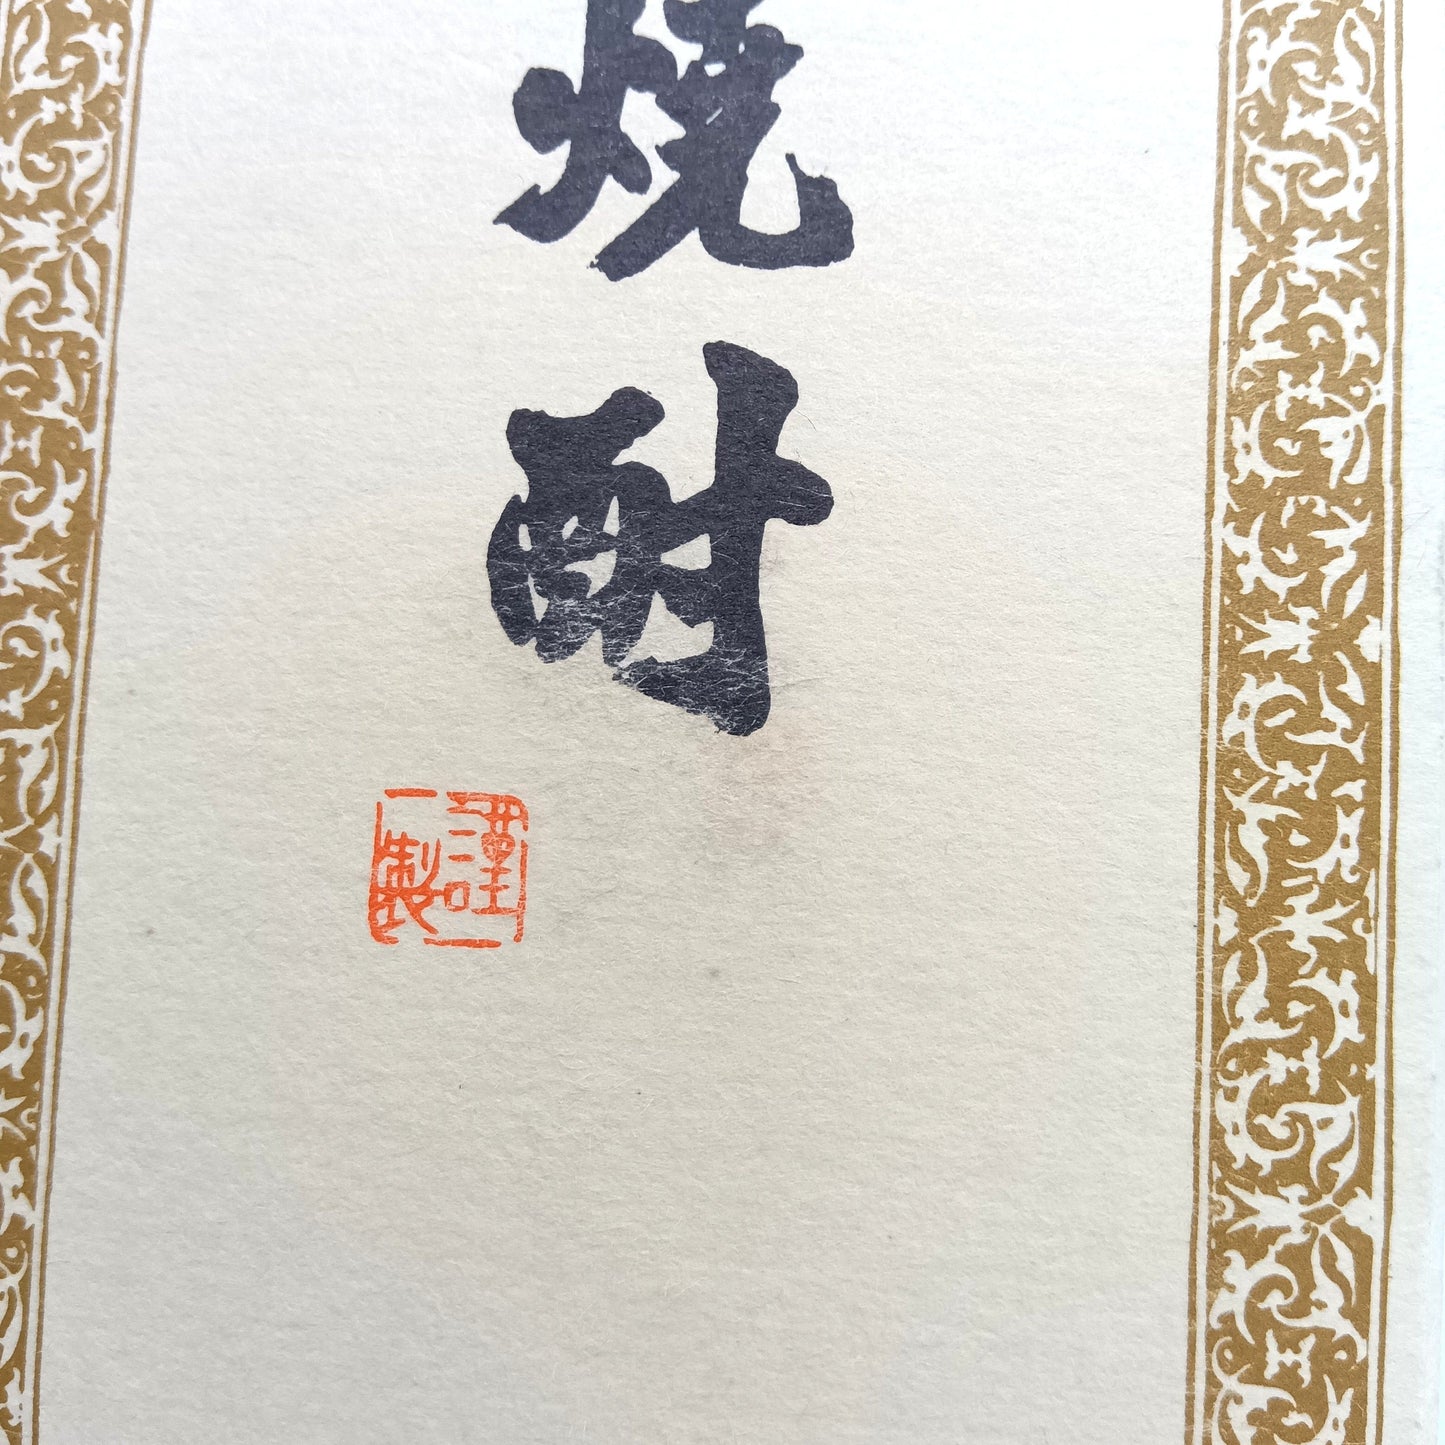 焼
酎
謹
製